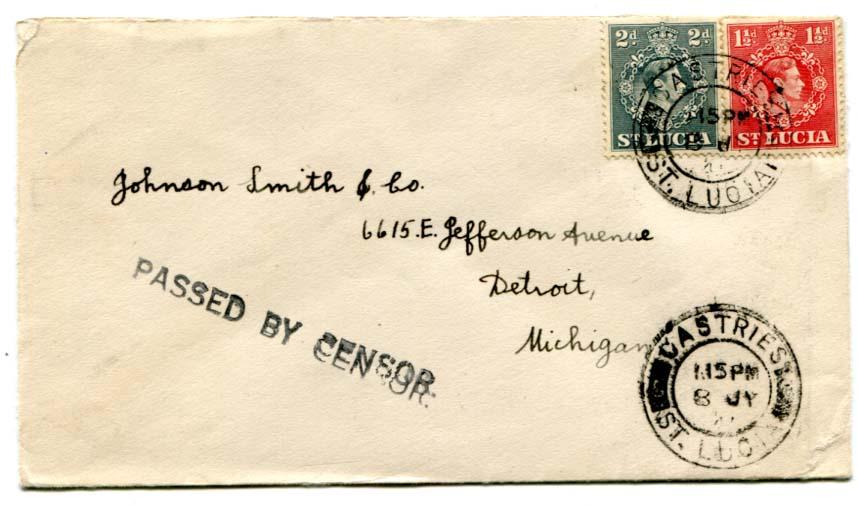 2d 2d
ST LUCIA
1½d 1½d
ST LUCIA
CASTRIES
1.15PM
ST. LUCIA
Johnson Smith & Co.
6615.E. Jefferson Avenue
Detroit,
Michigan
PASSED BY CENSOR.
CASTRIES
1.15PM
8 JY
ST. LUCIA